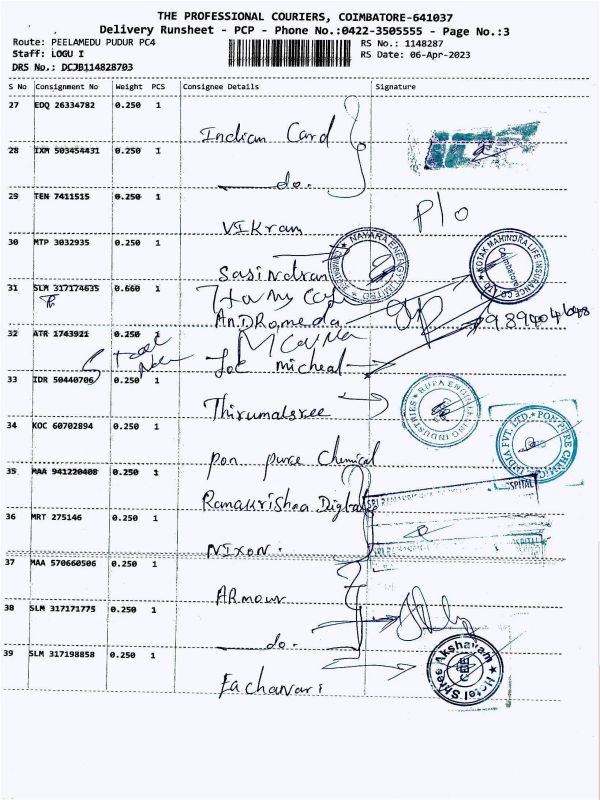 THE PROFESSIONAL COURIERS, COIMBATORE-641037
Delivery Runsheet - PCP - Phone No.:0422-3505555 - Page No.:3
Route: PEELAMEDU PUDUR PC4
RS No.: 1148287
Staff: LOGU I
RS Date: 06-Apr-2023
DRS No.: DCJB114828703
S No Consignment No Weight PCS Consignee Details Signature
27 EDQ 26334782 0.250 1
Indian Card
28 IXM 503454431 0.250 1
do.
29 TEN 7411515 0.250 1
Vikram
P/o
30 MTP 3032935 0.250 1
Sasindran
NAYARA ENERGY LIMITED
KOTAK MAHINDRA LIFE INSURANCE CO. LTD.
Coimbatore
31 SLM 317174635 0.660 1
AnDRomeda
32 ATR 1743921 0.250 1
Joe micheal
33 IDR 50440706 0.250 1
Thirumalsree
RUPA ENGINEERING INDUSTRIES
34 KOC 60702894 0.250 1
Pon pure Chemical
INDIA PVT. LTD. PON PURE CHEMICAL
35 MAA 941220408 0.250 1
Ramakrishna
36 MRT 275146 0.250 1
Nixon.
37 MAA 570660506 0.250 1
ARmour
38 SLM 317171775 0.250 1
do.
39 SLM 317198858 0.250 1
Hotel Shree Aksharam
CBE